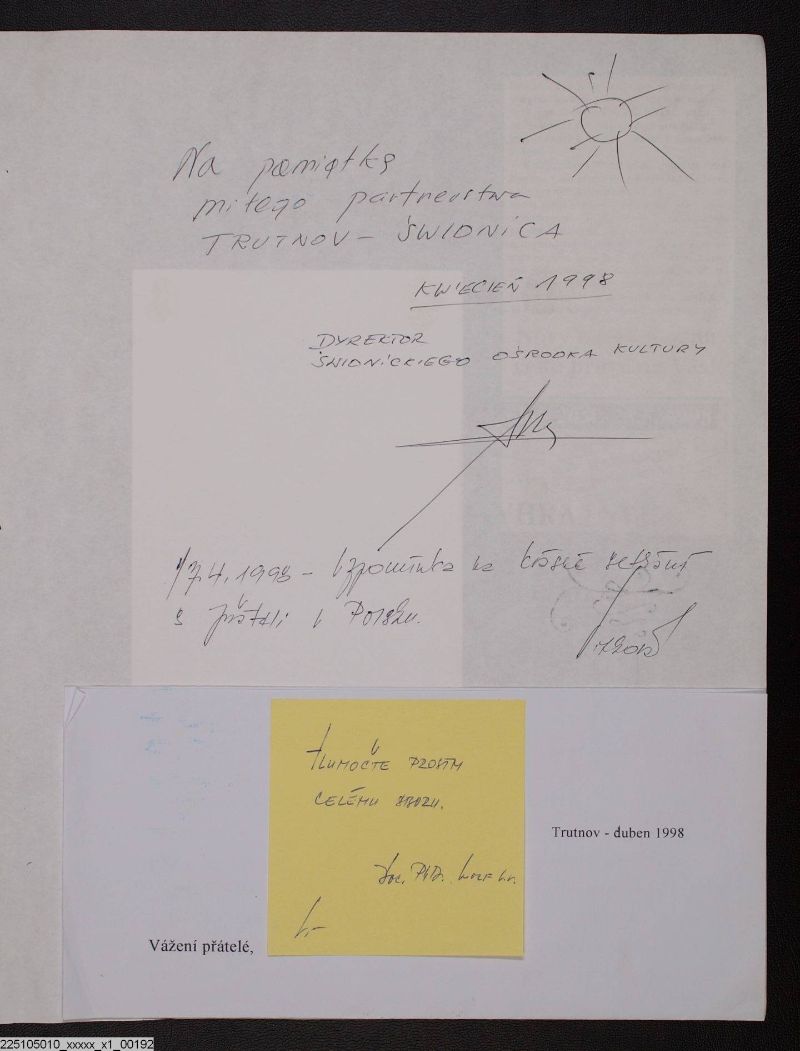 Na pamiątkę
miłego partnerstwa
TRUTNOV – ŚWIDNICA
KWIECIEŃ 1998
DYREKTOR
ŚWIDNICKIEGO OŚRODKA KULTURY
17.4.1998 – Vzpomínka na krásné setkání
s přáteli v Polsku.
TLUMOČTE PROSÍM
CELÉMU SBORU.
Trutnov - duben 1998
Doc. PhDr.
Vážení přátelé,
225105010_xxxxx_x1_00192